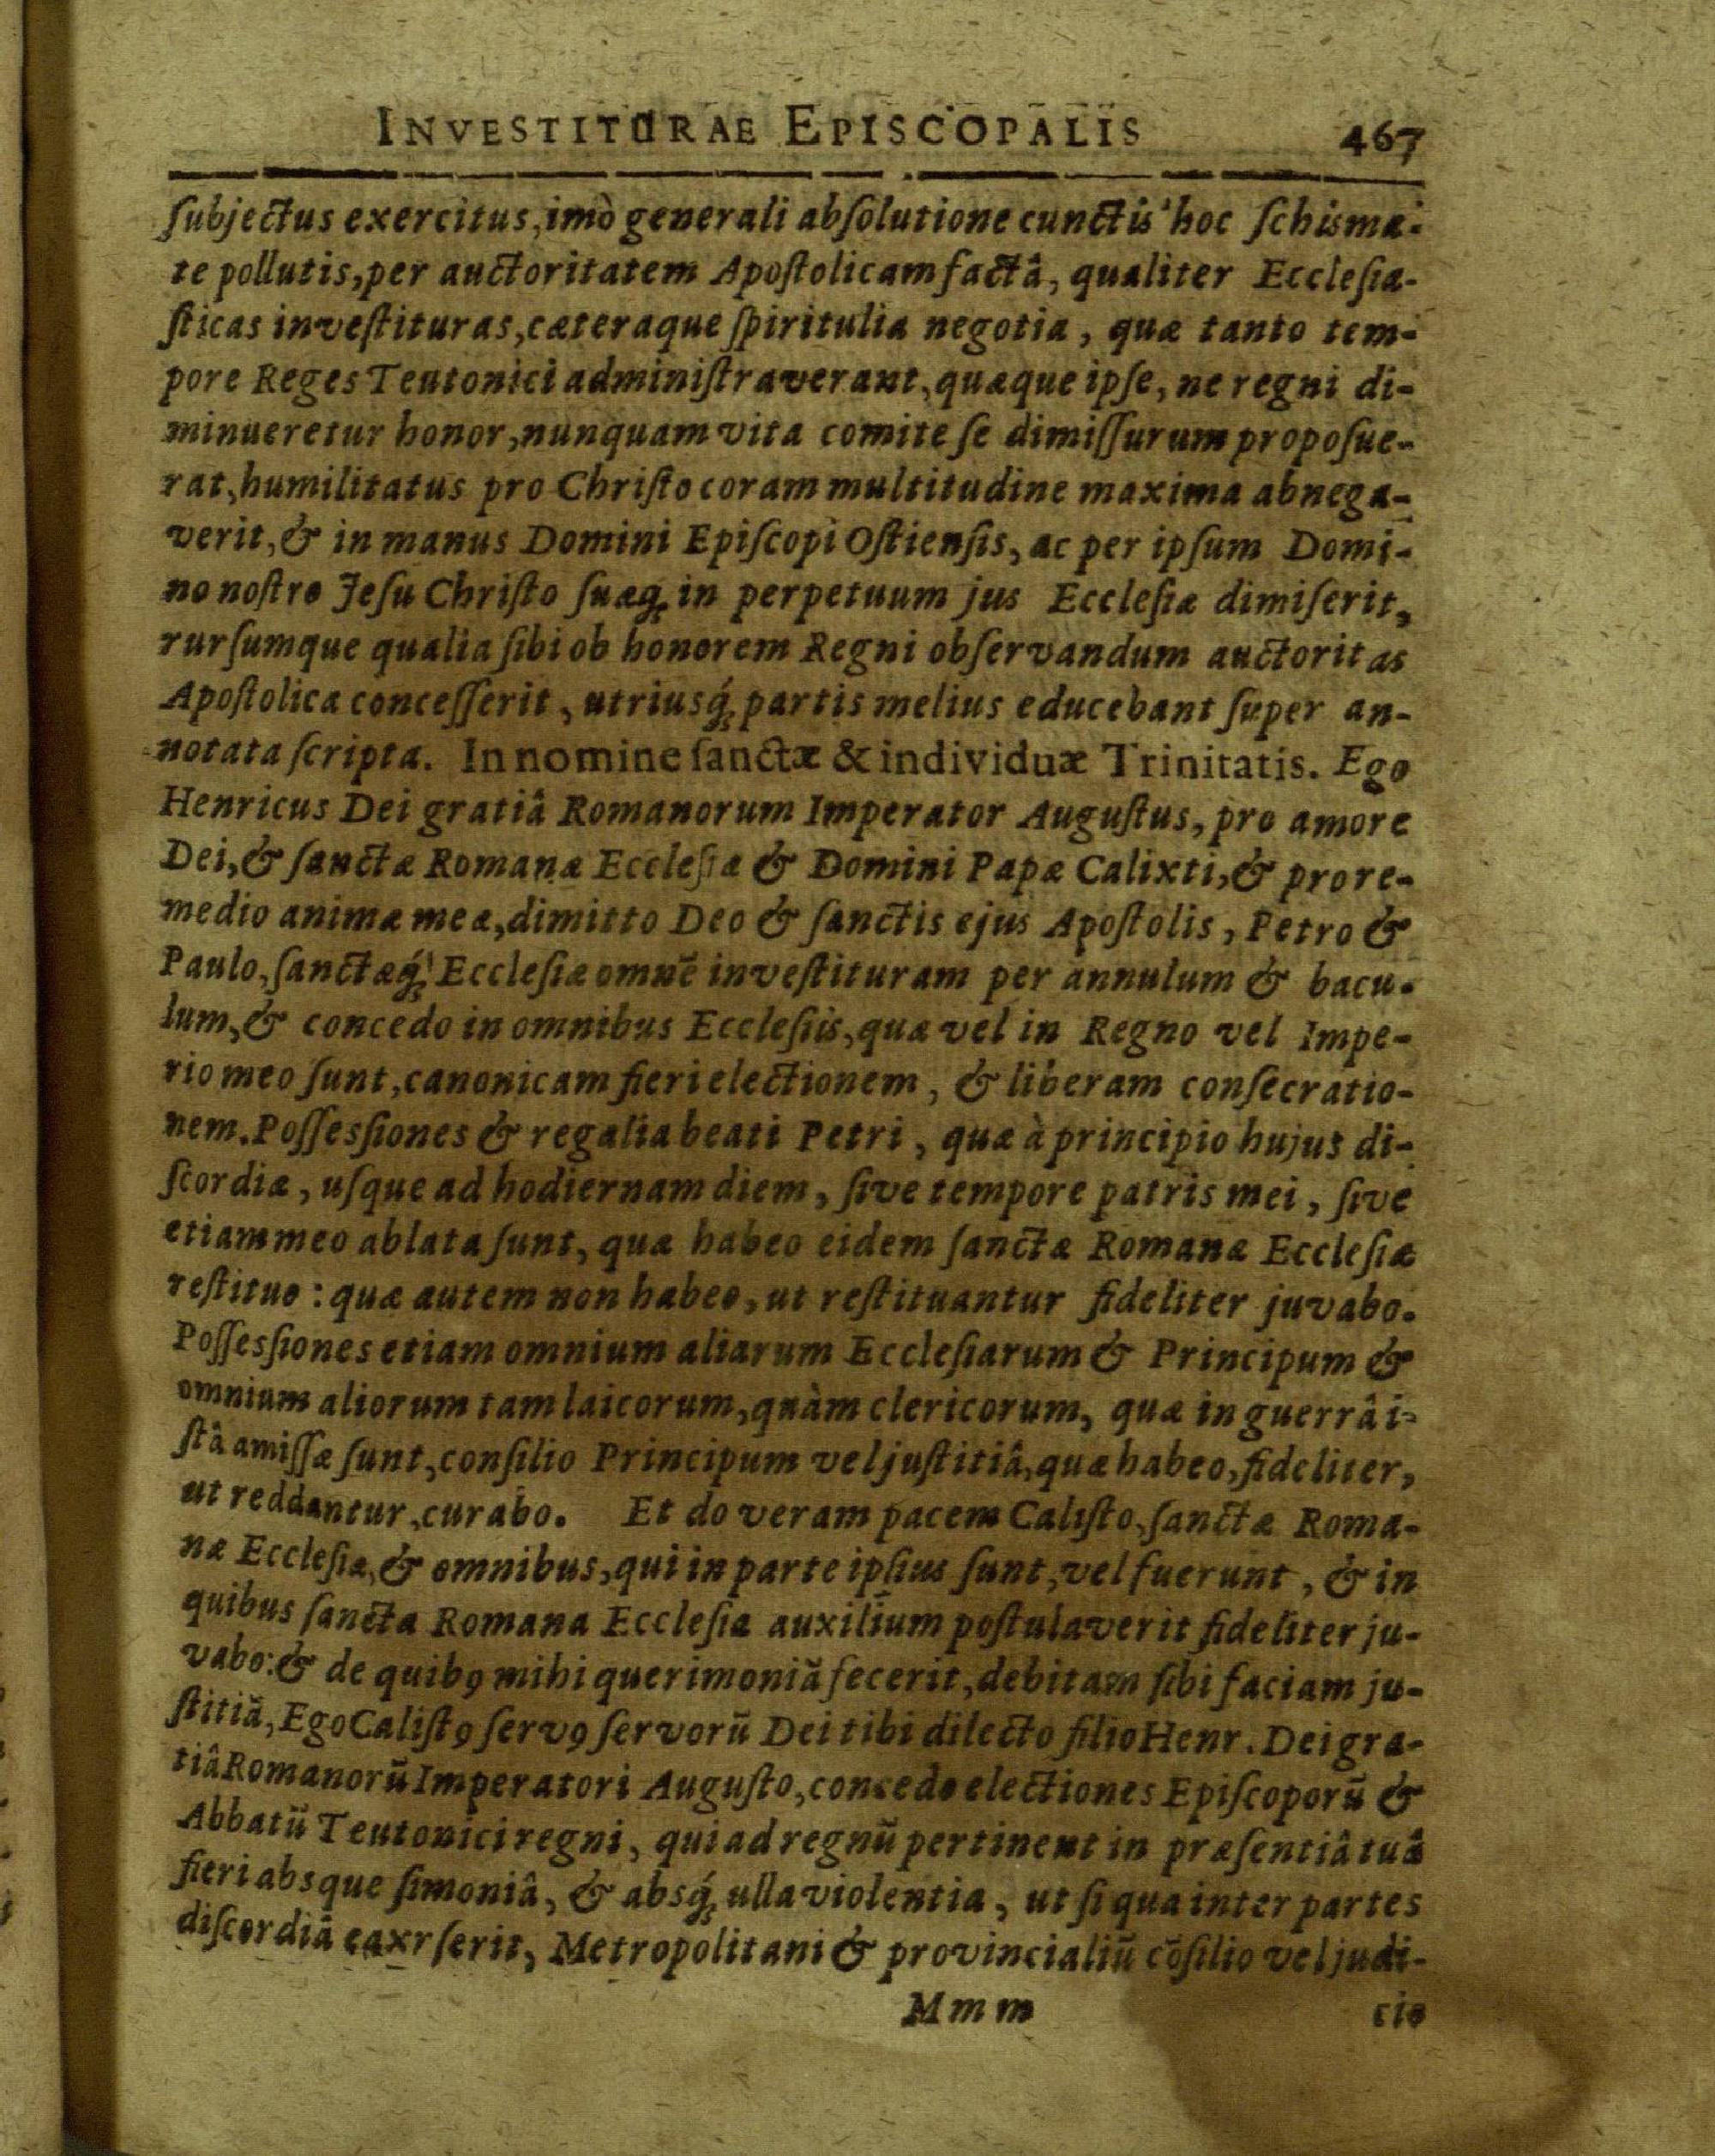 INVESTITURAE EPISCOPALIS 467
ſubjectus exercitus, imò generali abſolutione cunctis hoc ſchisma-
te pollutis, per auctoritatem Apoſtolicam factâ, qualiter Eccleſia-
ſticas inveſtituras, cæteraque ſpiritulia negotia, quæ tanto tem-
pore Reges Teutonici adminiſtraverant, quæque ipſe, ne regni di-
minueretur honor, nunquam vita comite ſe dimiſſurum propoſue-
rat, humilitatus pro Chriſto coram multitudine maxima abnega-
verit, & in manus Domini Epiſcopi Oſtienſis, ac per ipſum Domi-
no noſtro Jeſu Chriſto ſuæq́ꝫ in perpetuum jus Eccleſiæ dimiſerit,
rurſumque qualia ſibi ob honorem Regni obſervandum auctoritas
Apoſtolica conceſſerit, utriusq́ꝫ partis melius educebant ſuper an-
notata ſcripta. In nomine ſanctæ & individuæ Trinitatis. Ego
Henricus Dei gratiâ Romanorum Imperator Auguſtus, pro amore
Dei, & ſanctæ Romanæ Eccleſiæ & Domini Papæ Calixti, & pro re-
medio animæ meæ, dimitto Deo & ſanctis ejus Apoſtolis, Petro &
Paulo, ſanctæq́ꝫ Eccleſiæ omnẽ inveſtituram per annulum & bacu-
lum, & concedo in omnibus Eccleſiis, quæ vel in Regno vel Impe-
rio meo ſunt, canonicam fieri electionem, & liberam conſecratio-
nem. Poſſesſiones & regalia beati Petri, quæ à principio hujus di-
ſcordiæ, uſque ad hodiernam diem, ſive tempore patris mei, ſive
etiam meo ablata ſunt, quæ habeo eidem ſanctæ Romanæ Eccleſiæ
reſtituo: quæ autem non habeo, ut reſtituantur fideliter juvabo.
Poſſesſiones etiam omnium aliarum Eccleſiarum & Principum &
omnium aliorum tam laicorum, quàm clericorum, quæ in guerrâ i-
ſtâ amiſſæ ſunt, conſilio Principum vel juſtitiâ, quæ habeo, fideliter,
ut reddantur, curabo. Et do veram pacem Caliſto, ſanctæ Roma-
næ Eccleſiæ, & omnibus, qui in parte ipſius ſunt, vel fuerunt, & in
quibus ſancta Romana Eccleſia auxilium poſtulaverit fideliter ju-
vabo: & de quibꝰ mihi querimoniã fecerit, debitam ſibi faciam ju-
ſtitiã, Ego Caliſtꝰ ſervꝰ ſervorũ Dei tibi dilecto filio Henr. Dei gra-
tiâ Romanorũ Imperatori Auguſto, concedo electiones Epiſcoporũ &
Abbatũ Teutonici regni, qui ad regnũ pertinent in præſentiâ tuâ
fieri absque ſimoniâ, & absq́ꝫ ulla violentia, ut ſi qua inter partes
diſcordiâ eaxrſerit, Metropolitani & provincialiũ cõſilio vel judi-
Mmm cio